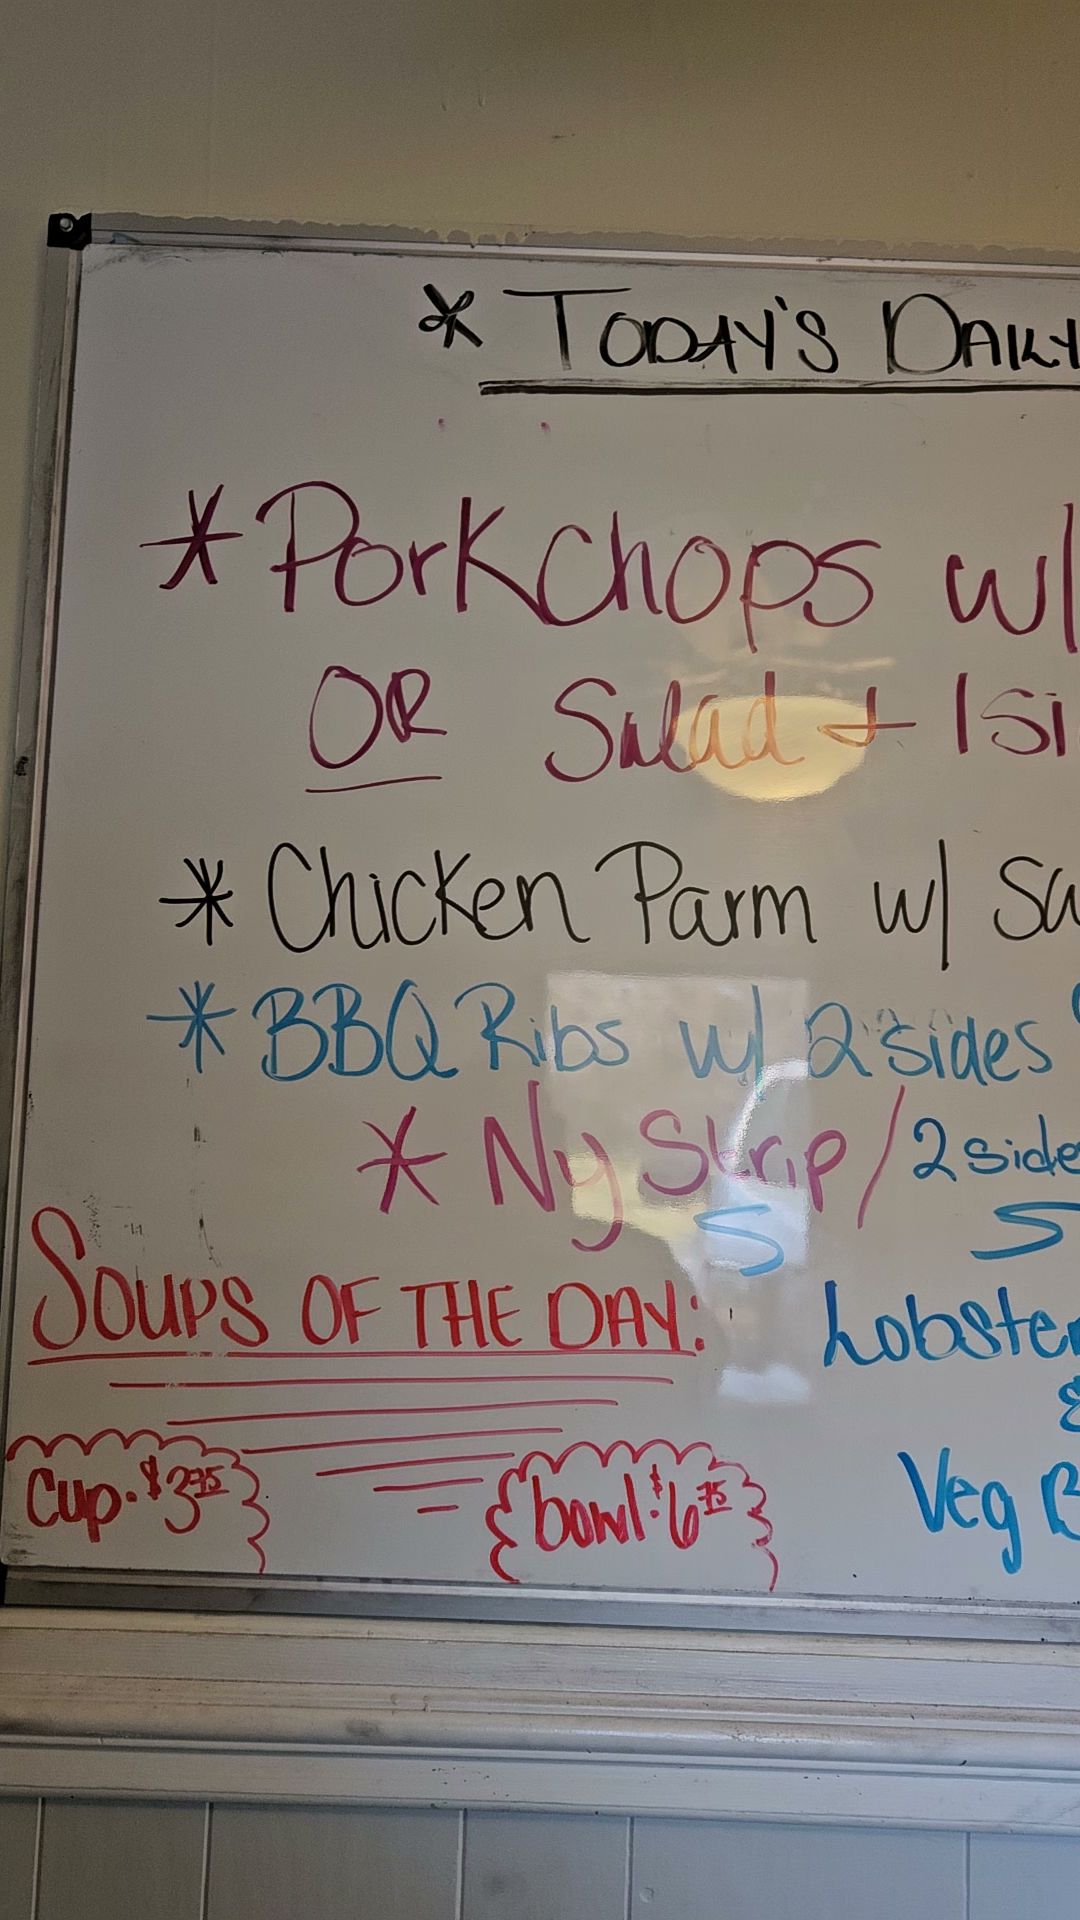 * TODAY'S DAILY
* Pork Chops w/
OR Salad + 1 si
* Chicken Parm w/ Sa
* BBQ Ribs w/ 2 sides
* Ny Strip / 2 side
S S
SOUPS OF THE DAY: Lobster
&
cup. $3.75 bowl. $6.75 Veg B